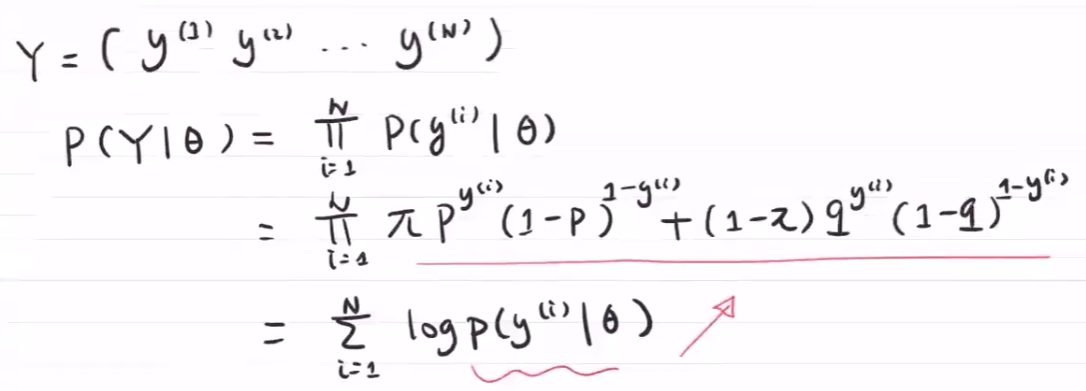 Y = ( y^(1) y^(2) ... y^(N) )
P(Y|θ) = ∏_{i=1}^{N} P(y^(i) | θ)
= ∏_{i=1}^{N} π p^{y^(i)} (1-p)^{1-y^(i)} + (1-π) q^{y^(i)} (1-q)^{1-y^(i)}
= ∑_{i=1}^{N} log p(y^(i) | θ)